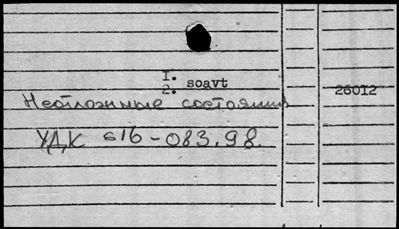 1.
2. soavt
26012
Неотложные состояния
УДК 616-083.98.